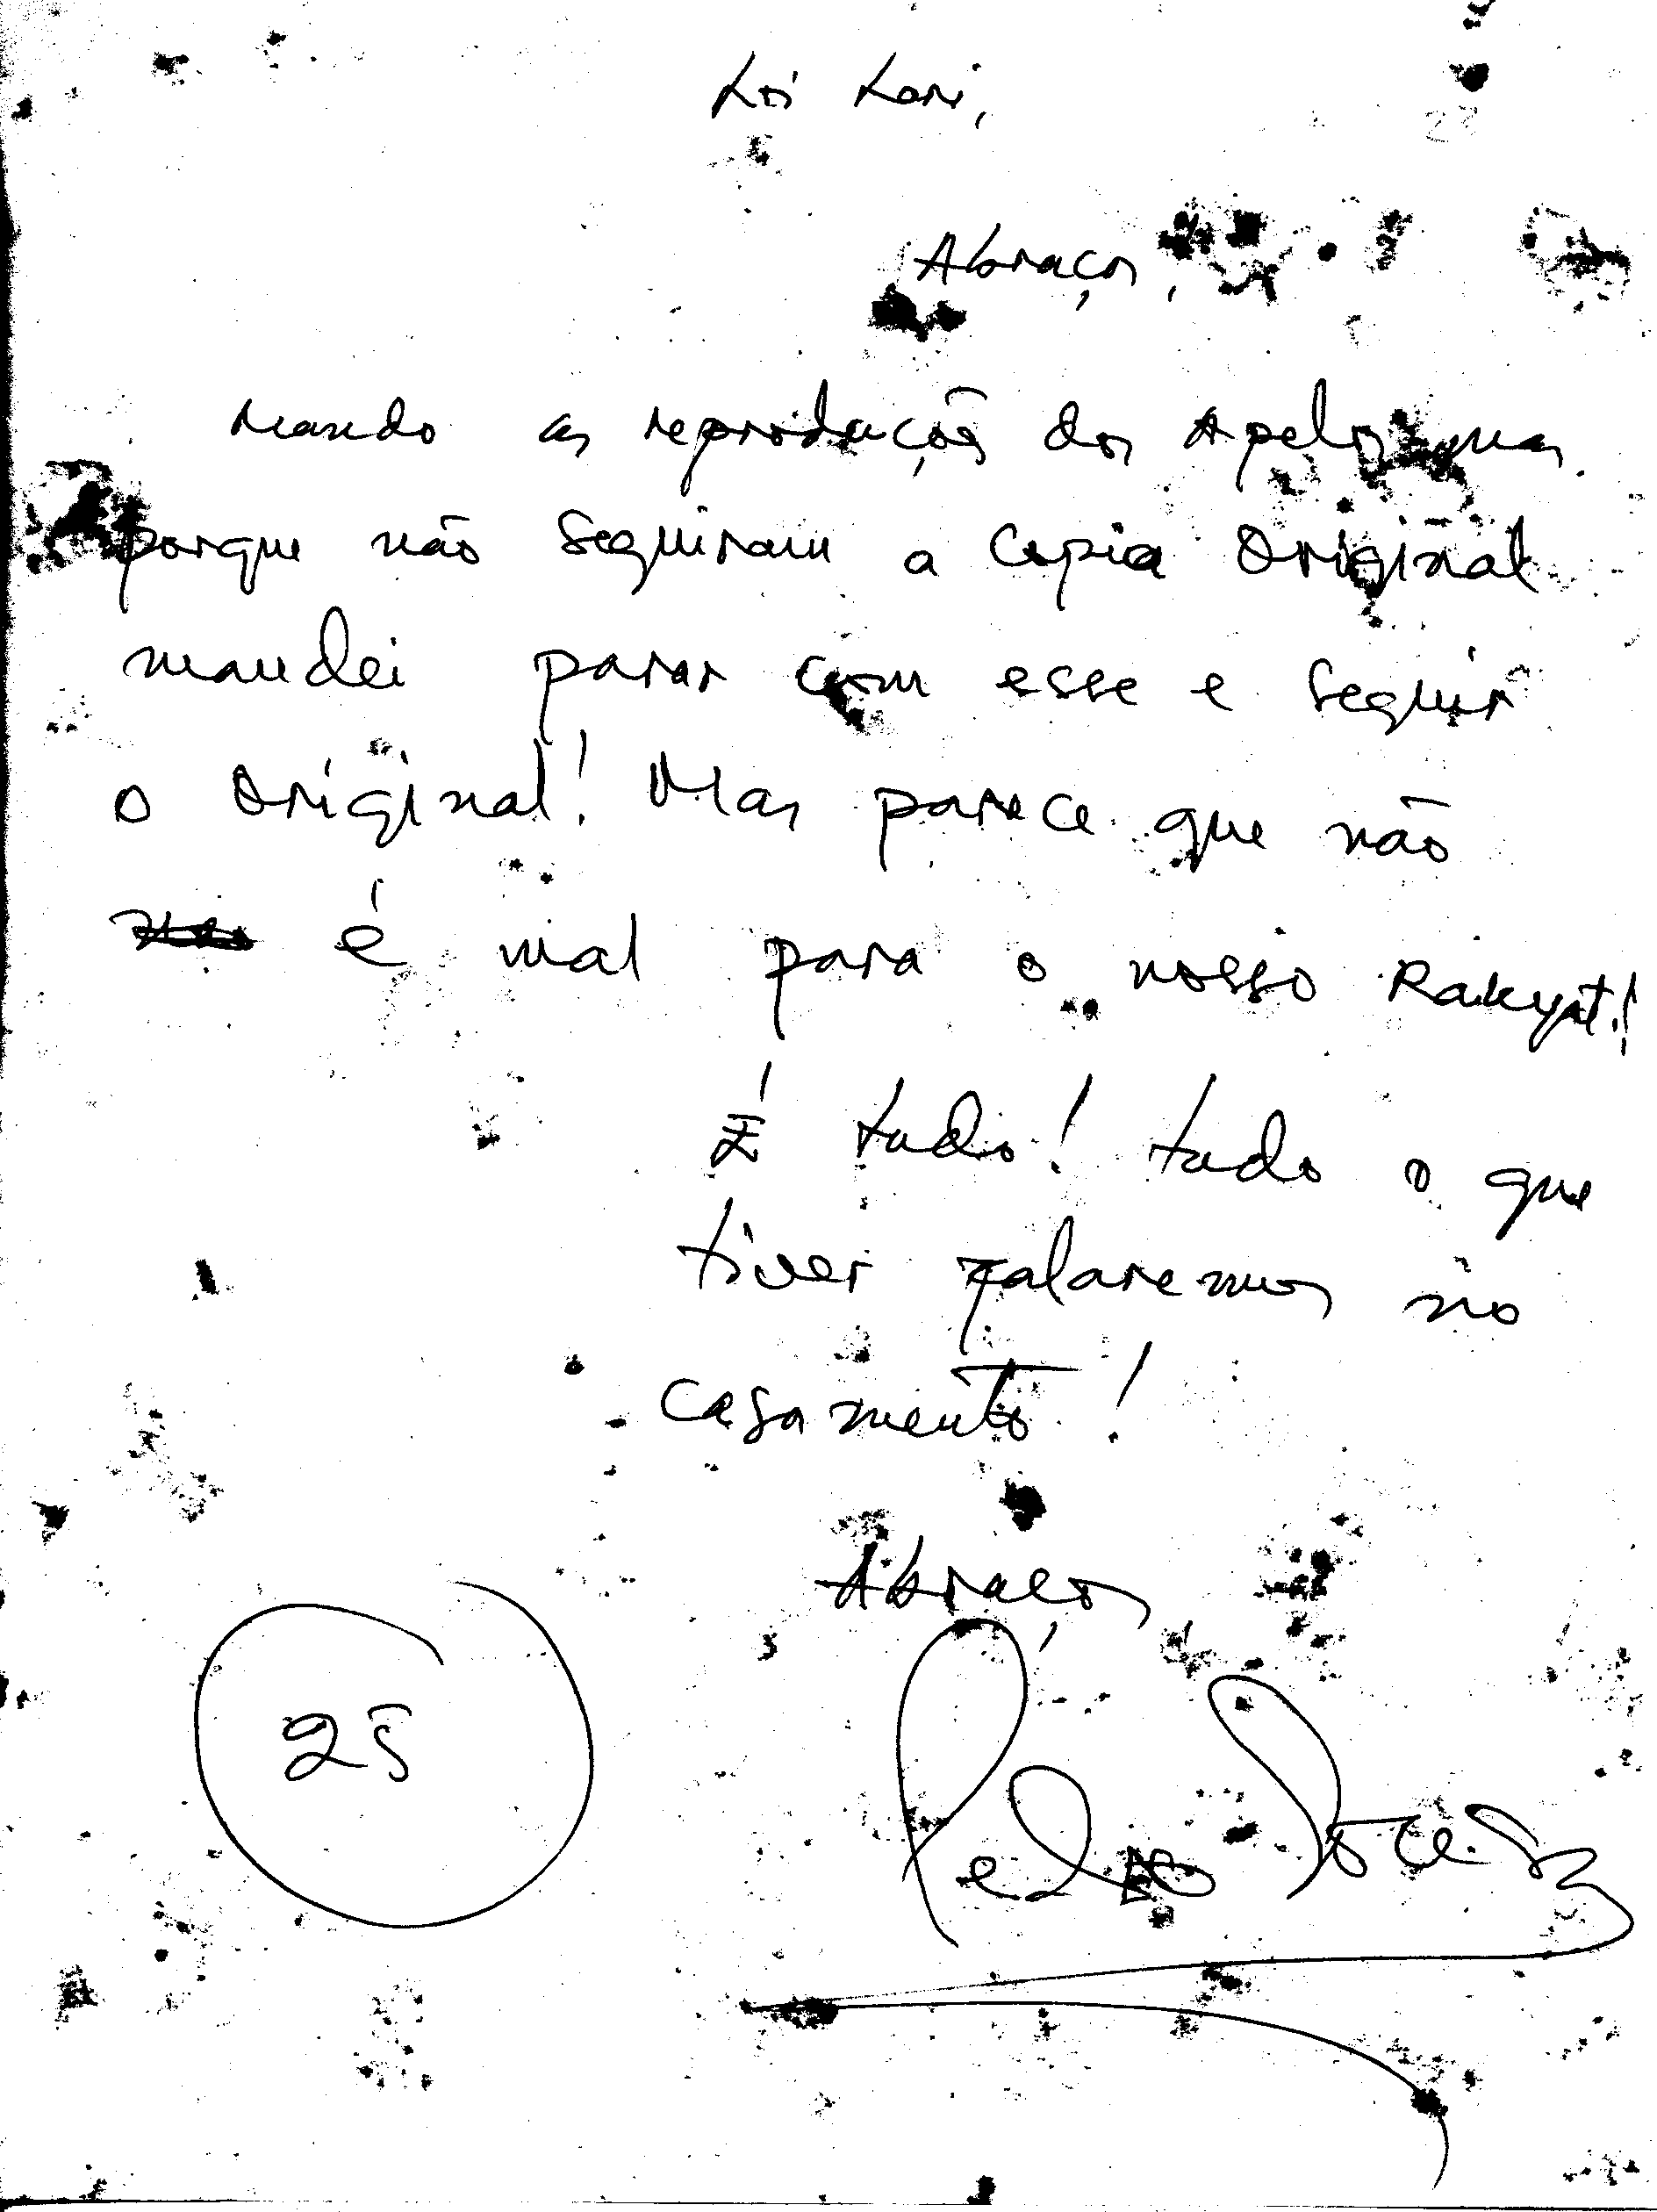 Loi Lari,
22
Abraços,
Mando as reproduções dos Apelos mas
porque não seguiram a copia Original
mandei parar com esse e seguir
o Original! Mas parece que não
é mal para o nosso Rakyat!
É tudo! tudo o que
tiver falaremos no
casamento!
Abraços,
25